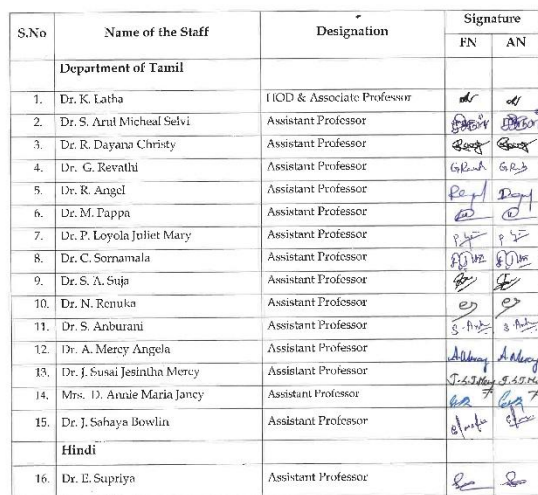 S.No Name of the Staff Designation Signature
FN AN
Department of Tamil
1. Dr. K. Latha HOD & Associate Professor
2. Dr. S. Arul Micheal Selvi Assistant Professor
3. Dr. R. Dayana Christy Assistant Professor
4. Dr. G. Revathi Assistant Professor
5. Dr. R. Angel Assistant Professor
6. Dr. M. Pappa Assistant Professor
7. Dr. P. Loyola Juliet Mary Assistant Professor
8. Dr. C. Sornamala Assistant Professor
9. Dr. S. A. Suja Assistant Professor
10. Dr. N. Renuka Assistant Professor
11. Dr. S. Anburani Assistant Professor
12. Dr. A. Mercy Angela Assistant Professor
13. Dr. J. Susai Jesintha Mercy Assistant Professor
14. Mrs. D. Annie Maria Jancy Assistant Professor
15. Dr. J. Sahaya Bowlin Assistant Professor
Hindi
16. Dr. E. Supriya Assistant Professor